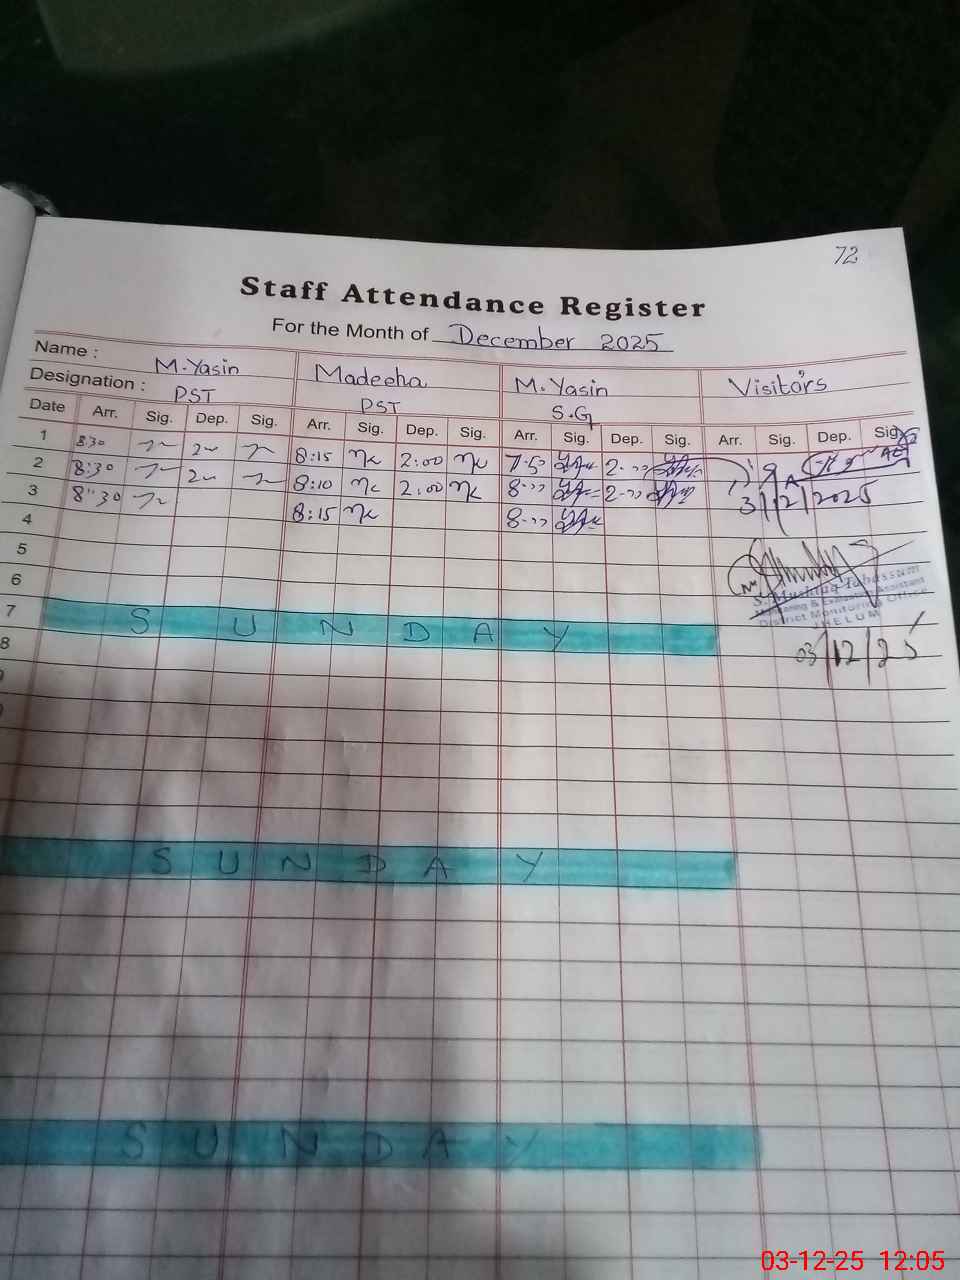 72
Staff Attendance Register
For the Month of December 2025
Name : M.Yasin Madeeha M.Yasin Visitors
Designation : PST PST S.G
Date Arr. Sig. Dep. Sig. Arr. Sig. Dep. Sig. Arr. Sig. Dep. Sig. Arr. Sig. Dep. Sig.
1 8:30 8:15 2:00 7:50
2 8:30 8:10 2:00
3 8:30 8:15 3/12/2025
4
5
6
7 S U N D A Y
District Monitoring Office
JHELUM
8 03/12/25
S U N D A Y
S U N D A Y
03-12-25 12:05